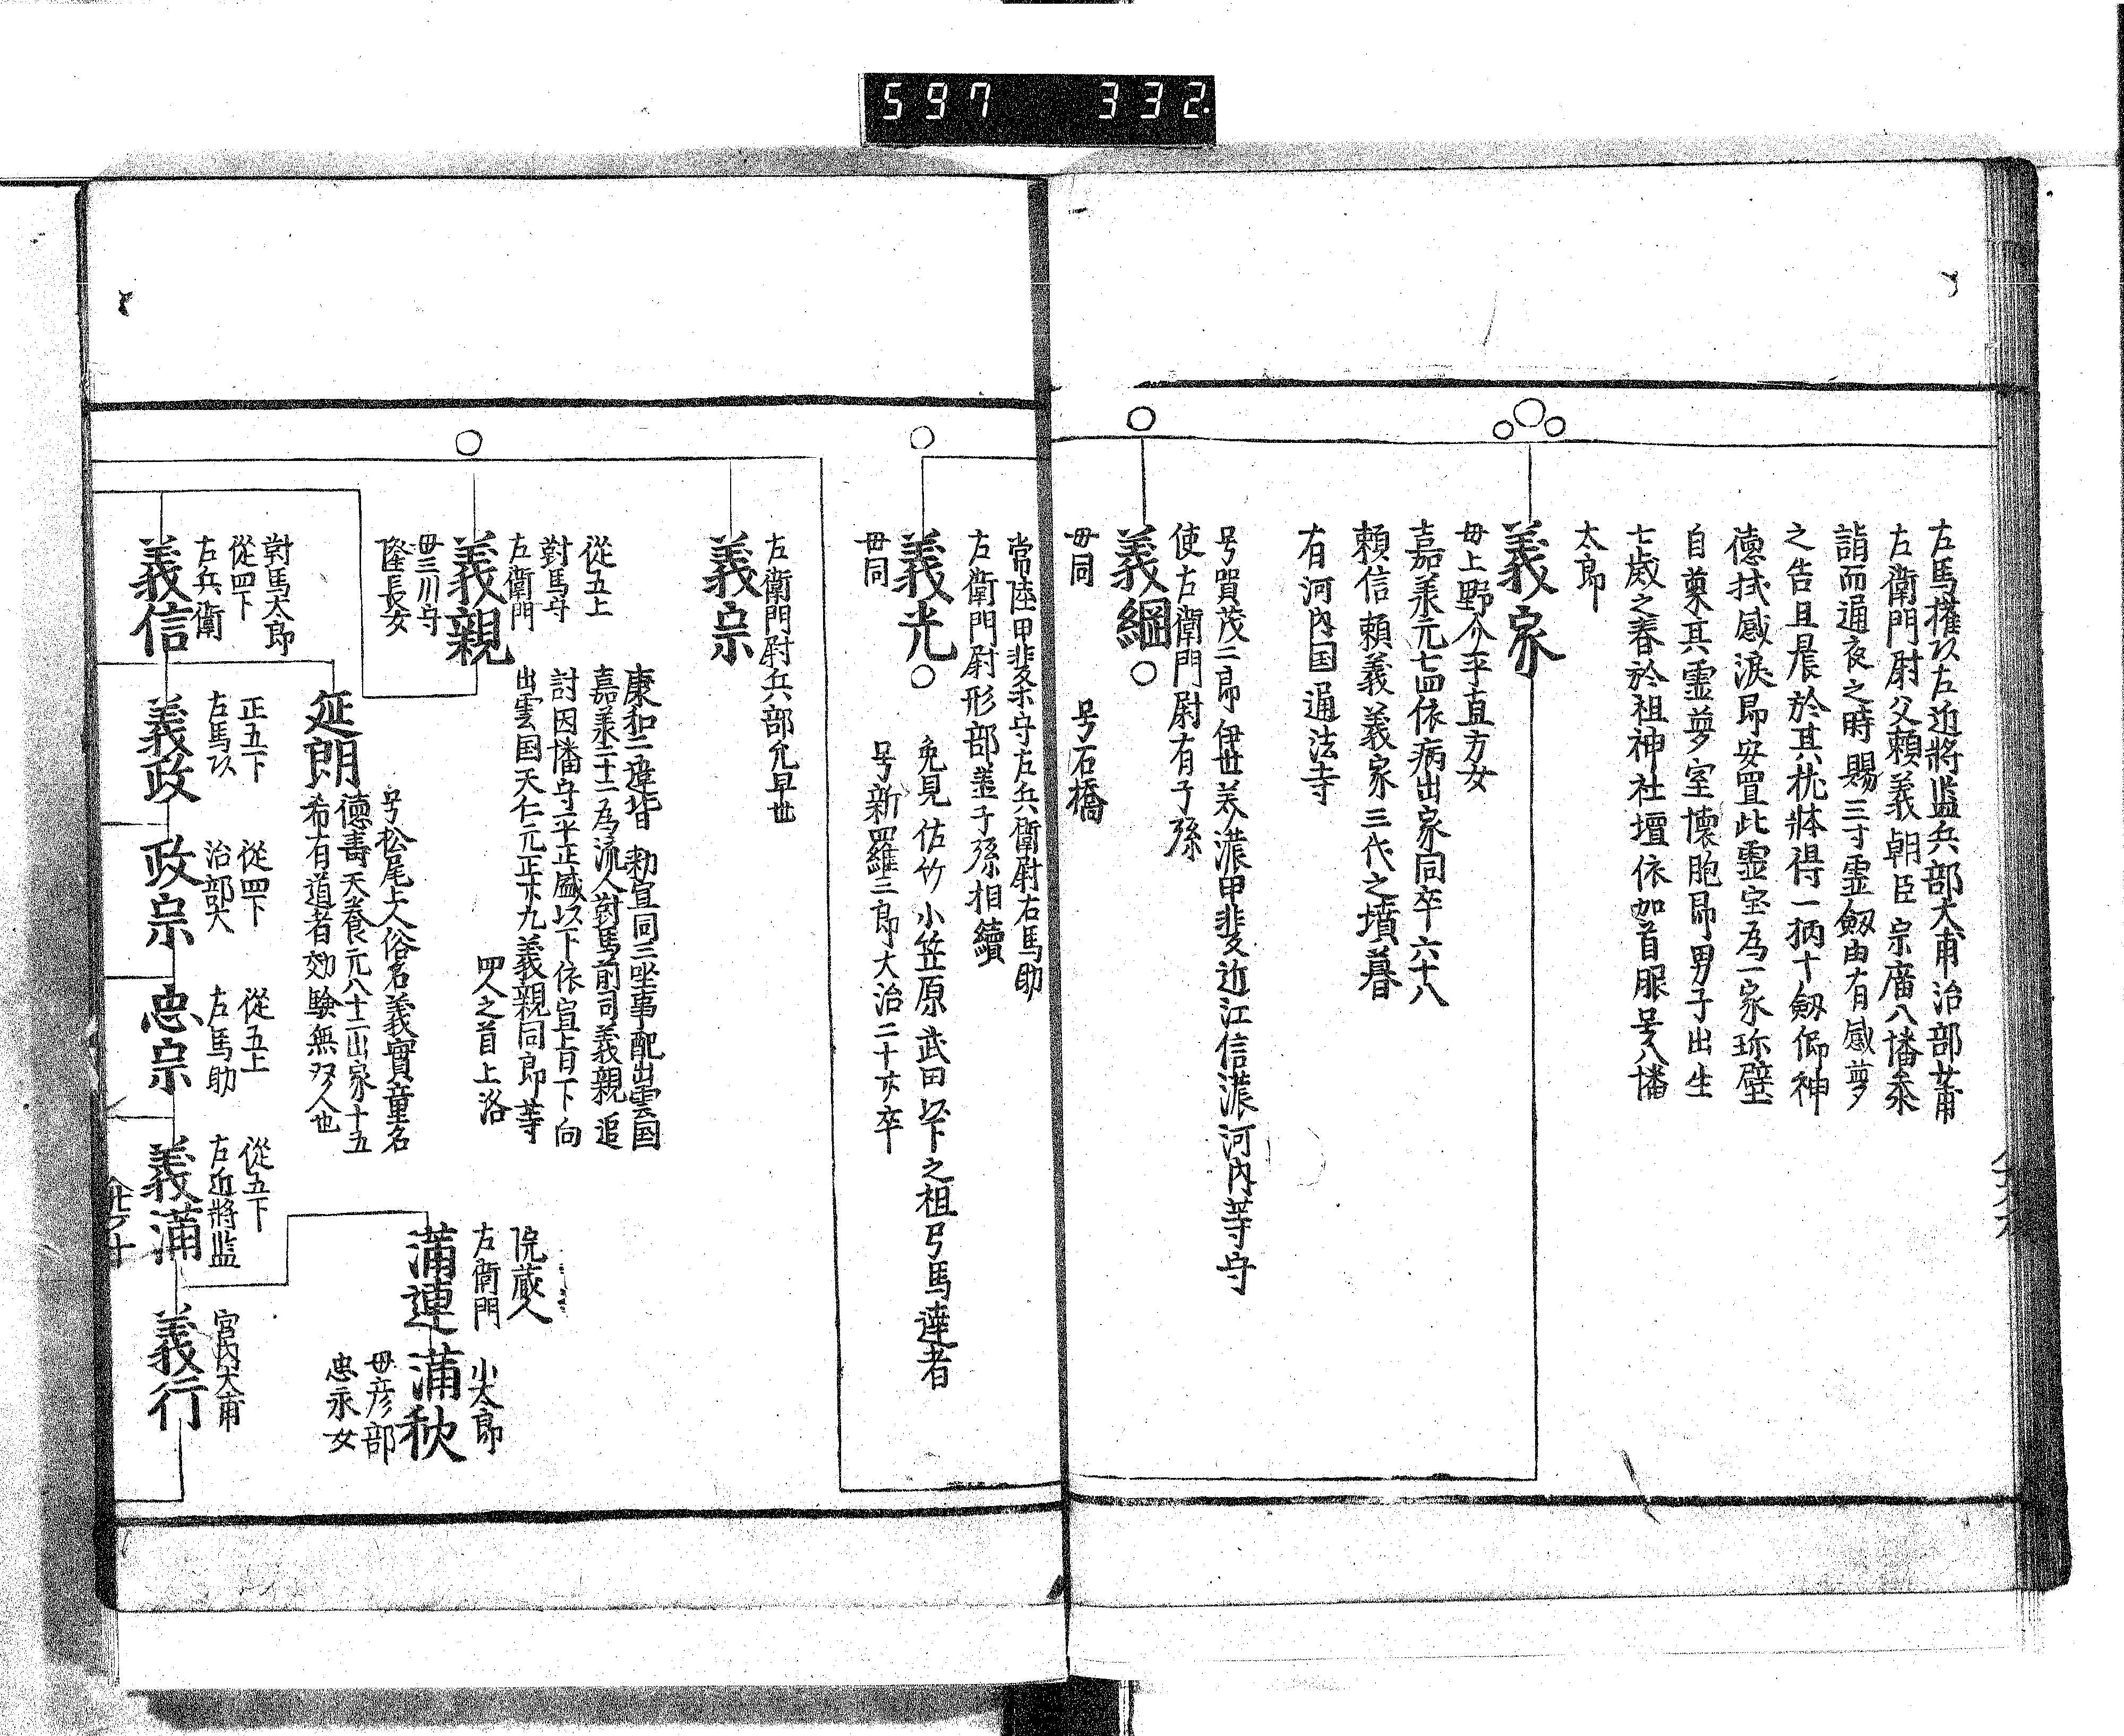 597 332
左馬権以左近將监兵部大甫治部莆
左衛門尉父頼義朝臣宗廣八幡氽
詣而通夜之時賜三寸霊劔由有感夢
之告且晨於其枕牀得一柄十劔仰神
德拭感淚即安置此霊宝為一家珎璧
自爾其霊夢室懐胞即男子出生
七歳之春於祖神社壇依加首服号八幡
太郎
義家
毋上野介平直方女
嘉羕元七四依病出家同卒六十八
頼信頼義義家三代之墳墓
有河内国通法寺
号賀茂二郎伊世美濃甲斐近江信濃河内等守
使左衛門尉有子孫
義綱
毋同 号石橋
常陸甲斐守左兵衛尉右馬助
左衛門尉形部丞子孫相續
義光 免見佐竹小笠原武田以下之祖弓馬達者
毋同 号新羅三郎大治二十廾卒
左衛門尉兵部允早世
義宗
從五上
對馬守
左衛門
義親
毋三川守
隆長女
康和二違背勅宣同三坐事配出雲国
嘉羕二十二為流人對馬前司義親追
討因幡守平正盛以下依宣旨下向
出雲国天仁元正廾九義親同郎等
四人之首上洛
院蔵人
左衛門
滿連
小太郎
滿秋
毋彦部
忠永女
号松尾上人俗名義實童名
延朗
德壽天養元八十二出家十五
希有道者効験無双人也
對馬太郎
從四下
左兵衛
義信
正五下
左馬以
義政
從四下
治部大
政宗
從五上
左馬助
忠宗
從五下
左近將监
義滿
宮内大甫
義行